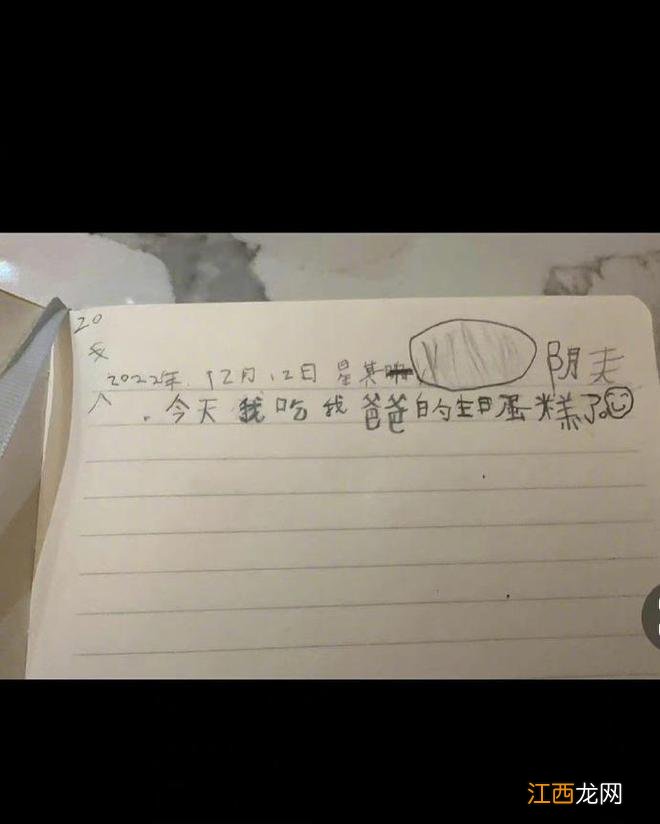 20
2022年.12月12日 星其 阴天
今天我吃我爸爸的生日蛋糕了。
江西龙网